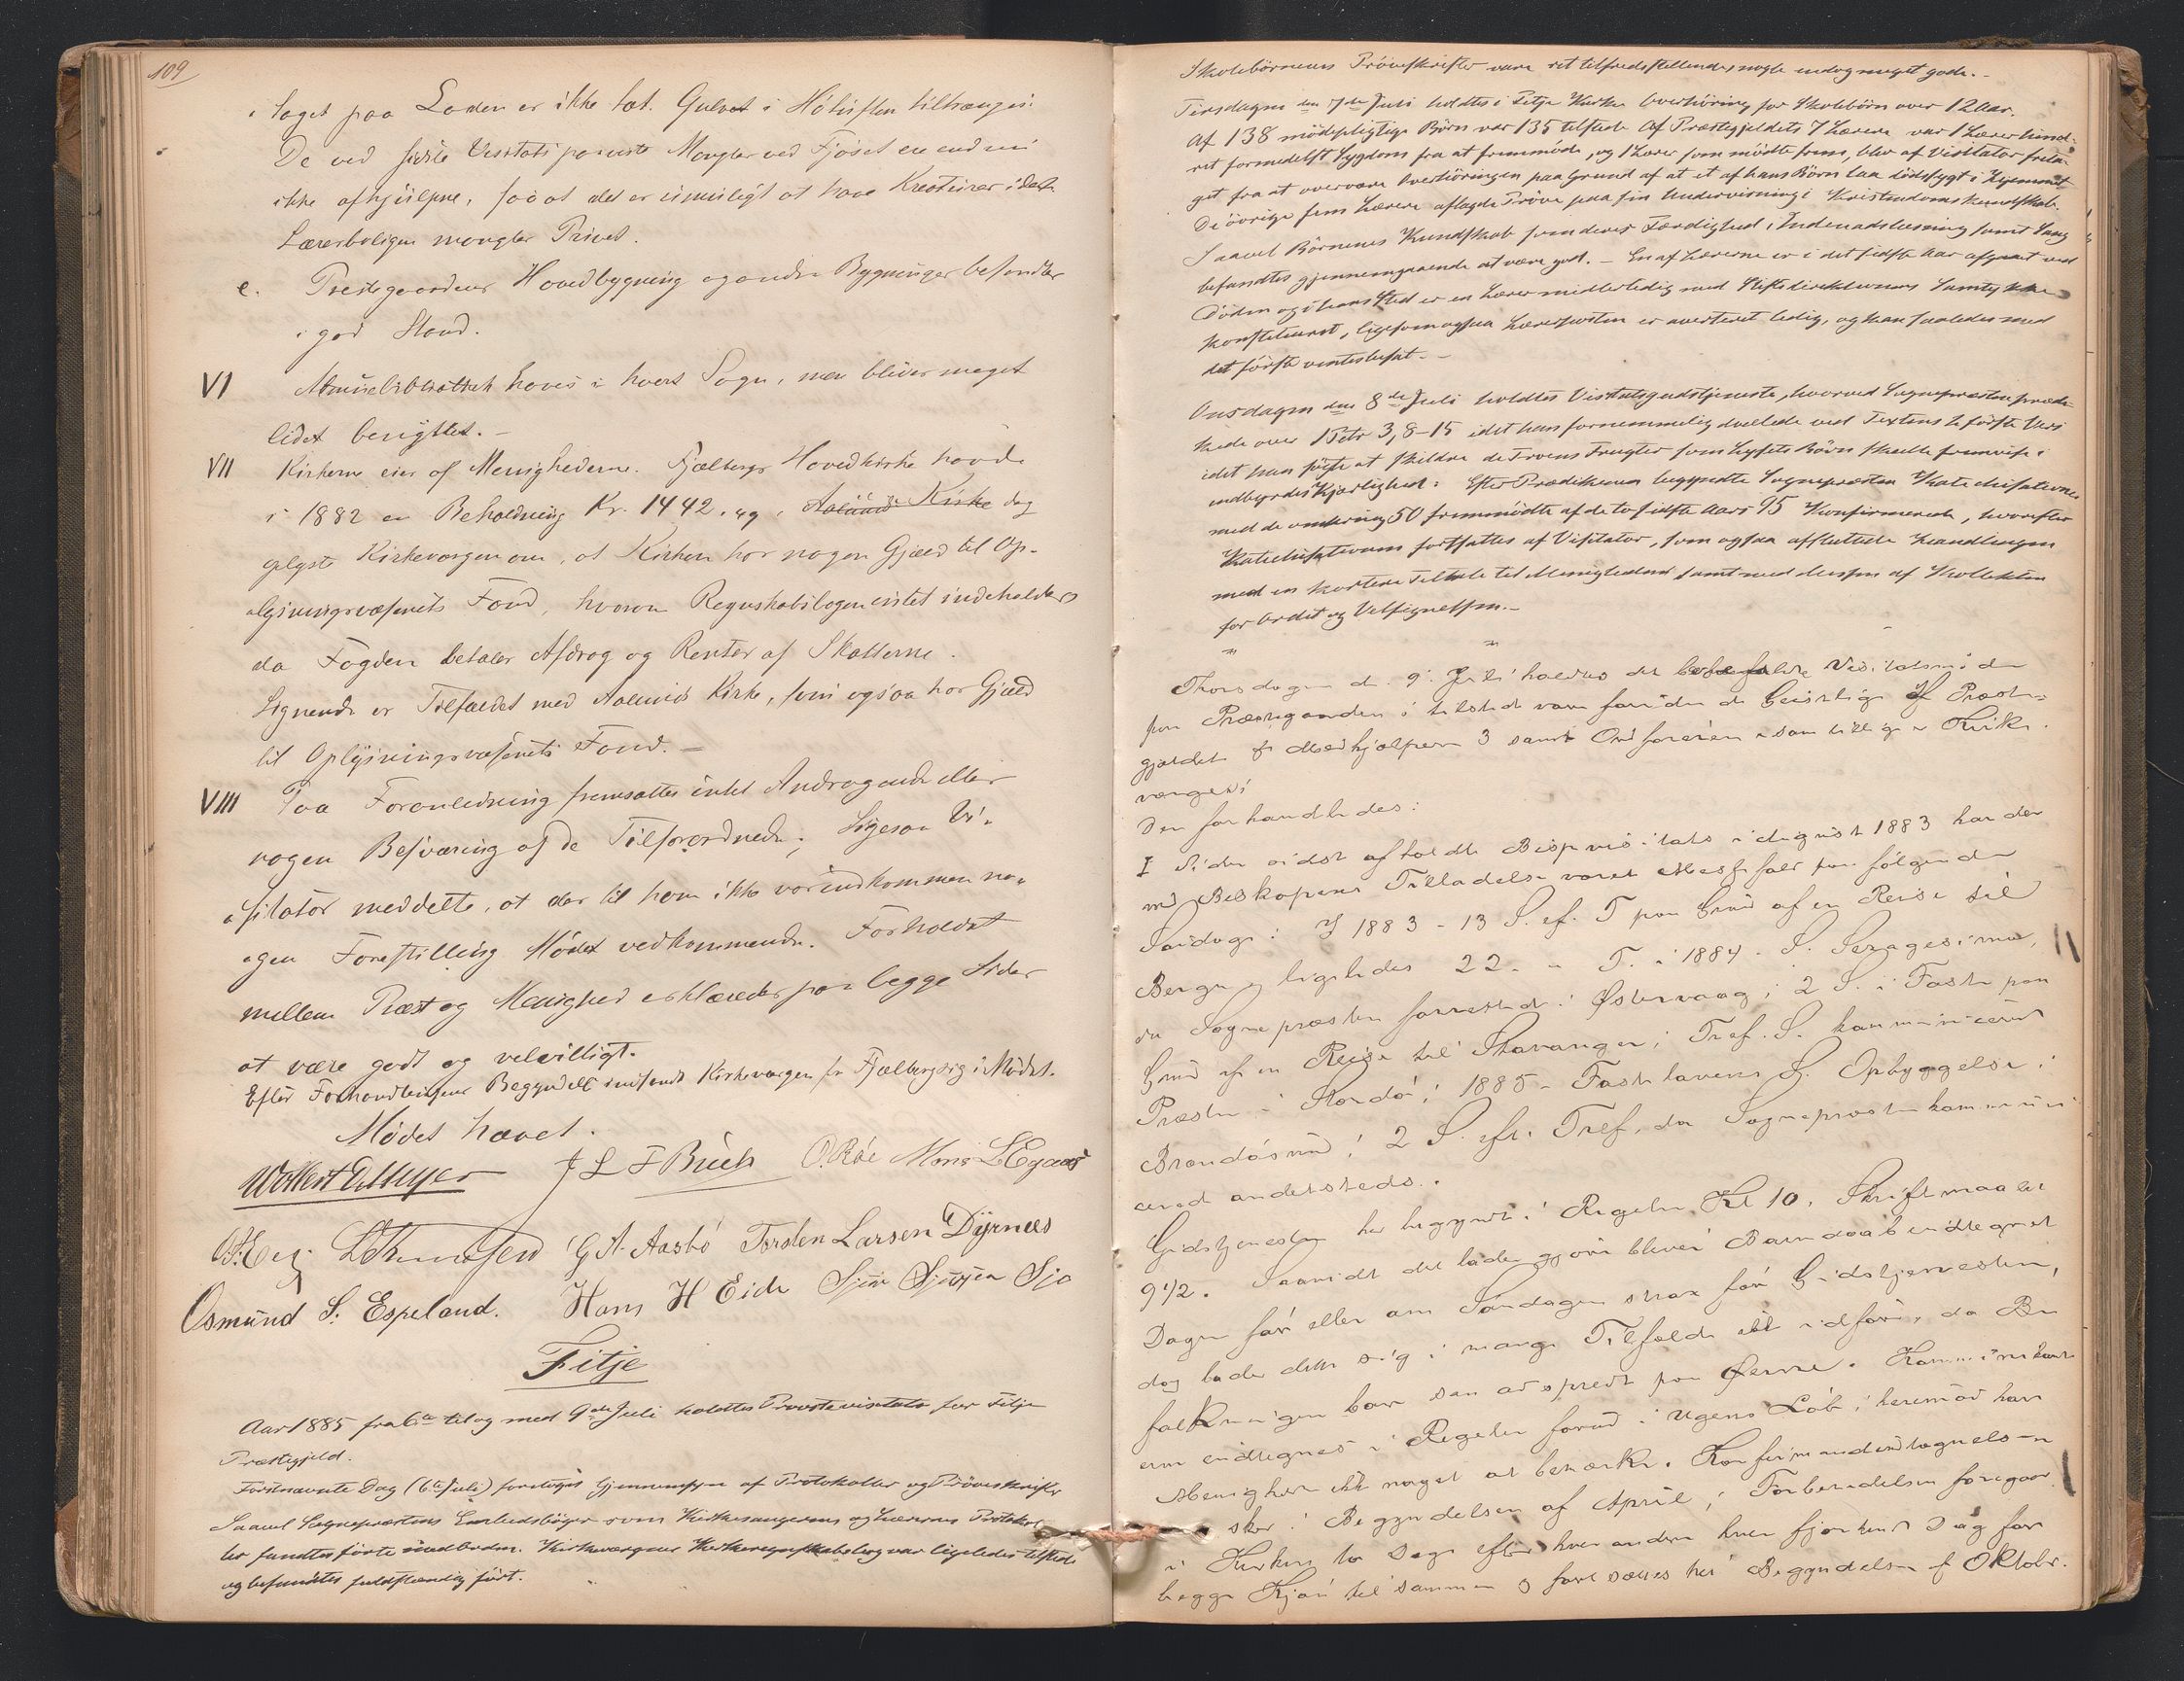 109
i Taget paa Laden er ikke tæt. Gulvet i Høløften tiltrænges.
De ved sidste Visitats paaviste Mangler ved Fjøset ere endnu
ikke afhjulpne, saa at det er umuligt at have Kreaturer i dette
Lærerboligen mangler Privet.
e. Prestegaardens Hovedbygning og andre Bygninger befandtes
i god Stand.
VI Almuebibliothek haves i hvert Sogn, men bliver meget
lidet benyttet. –
VII Kirkerne eies af Menighederne. Fjælbergs Hovedkirke havde
i 1882 en Beholdning Kr. 1442.49, Aalunds Kirke dog
oplyste Kirkevergen om, at Kirken har nogen Gjæld til Op-
lysningsvæsenets Fond, hvorom Regnskabsbogen intet indeholder
da Fogden betaler Afdrag og Renter af Skatterne.
Lignende er Tilfældet med Aalunds Kirke, som ogsaa har Gjæld
til Oplysningsvæsenets Fond. –
VIII Paa Foranledning fremsattes intet Andragende eller
nogen Besværing af de Tilforordnede; ligesaa Vi-
sitator meddelte, at der til ham ikke var indkommen no-
gen Forestilling Mødet vedkommende. Forholdet
mellem Præst og Menighed erklæredes paa begge Sider
at være godt og velvilligt.
Efter Forhandlingens Begyndelse indfandt Kirkevergen for Fjælberg sig i Mødet.
Mødet hævet.
J L F Buch O. Røe Mons L Egaas
G A. Aasbö Torsten Larsen Dyrnæs
Osmund S. Espeland. Hans H Eide
Fitje
Aar 1885 fra 6te til og med 9de Juli holdtes Provstevisitats for Fitje
Præstegjeld.
Førstnævnte Dag (6te Juli) foretoges Gjennemsyn af Protokoller og Prøveskrifter
Saavel Sognepræstens Embedsbøger som Kirkesangerens og Lærernes Protokol-
ler fandtes førte med Orden. Kirkeværgens Kirkeregnskabsbog var ligeledes tilstede
og befandtes fuldstændig ført.
Skolebørnenes Prøveskrifter vare ret tilfredsstillende, nogle endog meget gode. –
Tirsdagen den 7de Juli holdtes i Fitje Kirke Overhøring for Skolebørn over 12 Aar.
Af 138 mødepligtige Børn var 135 tilstede Af Præstegjeldets 7 Lærere var 1 Lærer hind-
ret formedelst Sygdom fra at fremmøde, og 1 Lærer som mødte frem, blev af Visitator frita-
get fra at overvære Overhøringen paa Grund af at et af hans Børn laa dødssygt i Hjemmet
De øvrige fem Lærere aflagde Prøve paa sin Undervisning i Kristendomskundskab.
Saavel Børnenes Kundskab som deres Færdighed i Indenadslæsning samt Sang
befandtes gjennemgaaende at være god. – En af Lærerne er i det sidste Aar afgaaet ved
Døden og i hans Sted er en Lærer midlertidig med Stiftsdirektionens Samtykke
konstitueret, ligesom ogsaa Lærerposten er averteret ledig, og kan saaledes med
det første ventes besat. –
Onsdagen den 8de Juli holdtes Visitatsgudstjeneste, hvorved Sognepræsten præde-
kede over 1 Petr 3, 8–15 idet han fornemmelig dvælede ved Textens to første Vers
idet han søgte at skildre de Troens Frugter som Lysets Børn skulle fremvise i
indbyrdes Kjærlighed. Efter Prædikenen begyndte Sognepræsten Katechisationen
med de omkring 50 fremmødte af de to sidste Aars 95 Konfirmerede, hvorefter
Katechisationen fortsattes af Visitator, som ogsaa afsluttede Handlingen
med en kortere Tiltale til Menigheden samt med Messen af Kollekten
for Ordet og Velsignelsen. –
Thorsdagen d. 9. Juli holdtes det befalede Visitatsmøde
paa Præstegaarden; tilstede vare foruden de Geistlige af Præste-
gjeldet Medhjælpere 3 samt Ordføreren som tillige er Kirke
værge.
Der forhandledes:
I Siden sidst afholdte Bispevisitats i August 1883 har der
med Biskopens Tilladelse været Messefald paa følgende
Søndage: I 1883 – 13 S. ef. T paa Grund af en Reise til
Bergen, ligeledes 22. " T. i 1884. S. Sexagesima,
da Sognepræsten forrettede i Østervaag; 2 S. i Faste paa
Grund af en Reise til Stavanger; Tref. S. kommunicerede
Præsten i Stordø; 1885 – Fastelavens S. Opbyggelse i
Brandasund; 2 S. eft. Tref, da Sognepræsten kommuni
cered andetsteds.
Gudstjenesten her begyndt i Regelen Kl 10, Skriftmaalet
9 1/2. Saavidt det lader gjøre bliver Barndaab indtegnet
Dagen før eller om Søndagen strax før Gudstjenesten,
dog lader dette sig i mange Tilfælde ikke udføre, da Be
folkningen bor saa adspredt paa Øerne. Kommunikanter-
erne indtegnes i Regelen forud i Ugens Løb; herimod har
Menigheden ikke noget at bemærke. Konfirmandindtagnelsen
sker i Begyndelsen af April; Forberedelsen foregaar
i Kirken to Dage efter hverandre hver fjortende Dag for
begge Kjøn tilsammen og fortsættes til Begyndelsen af Oktober.